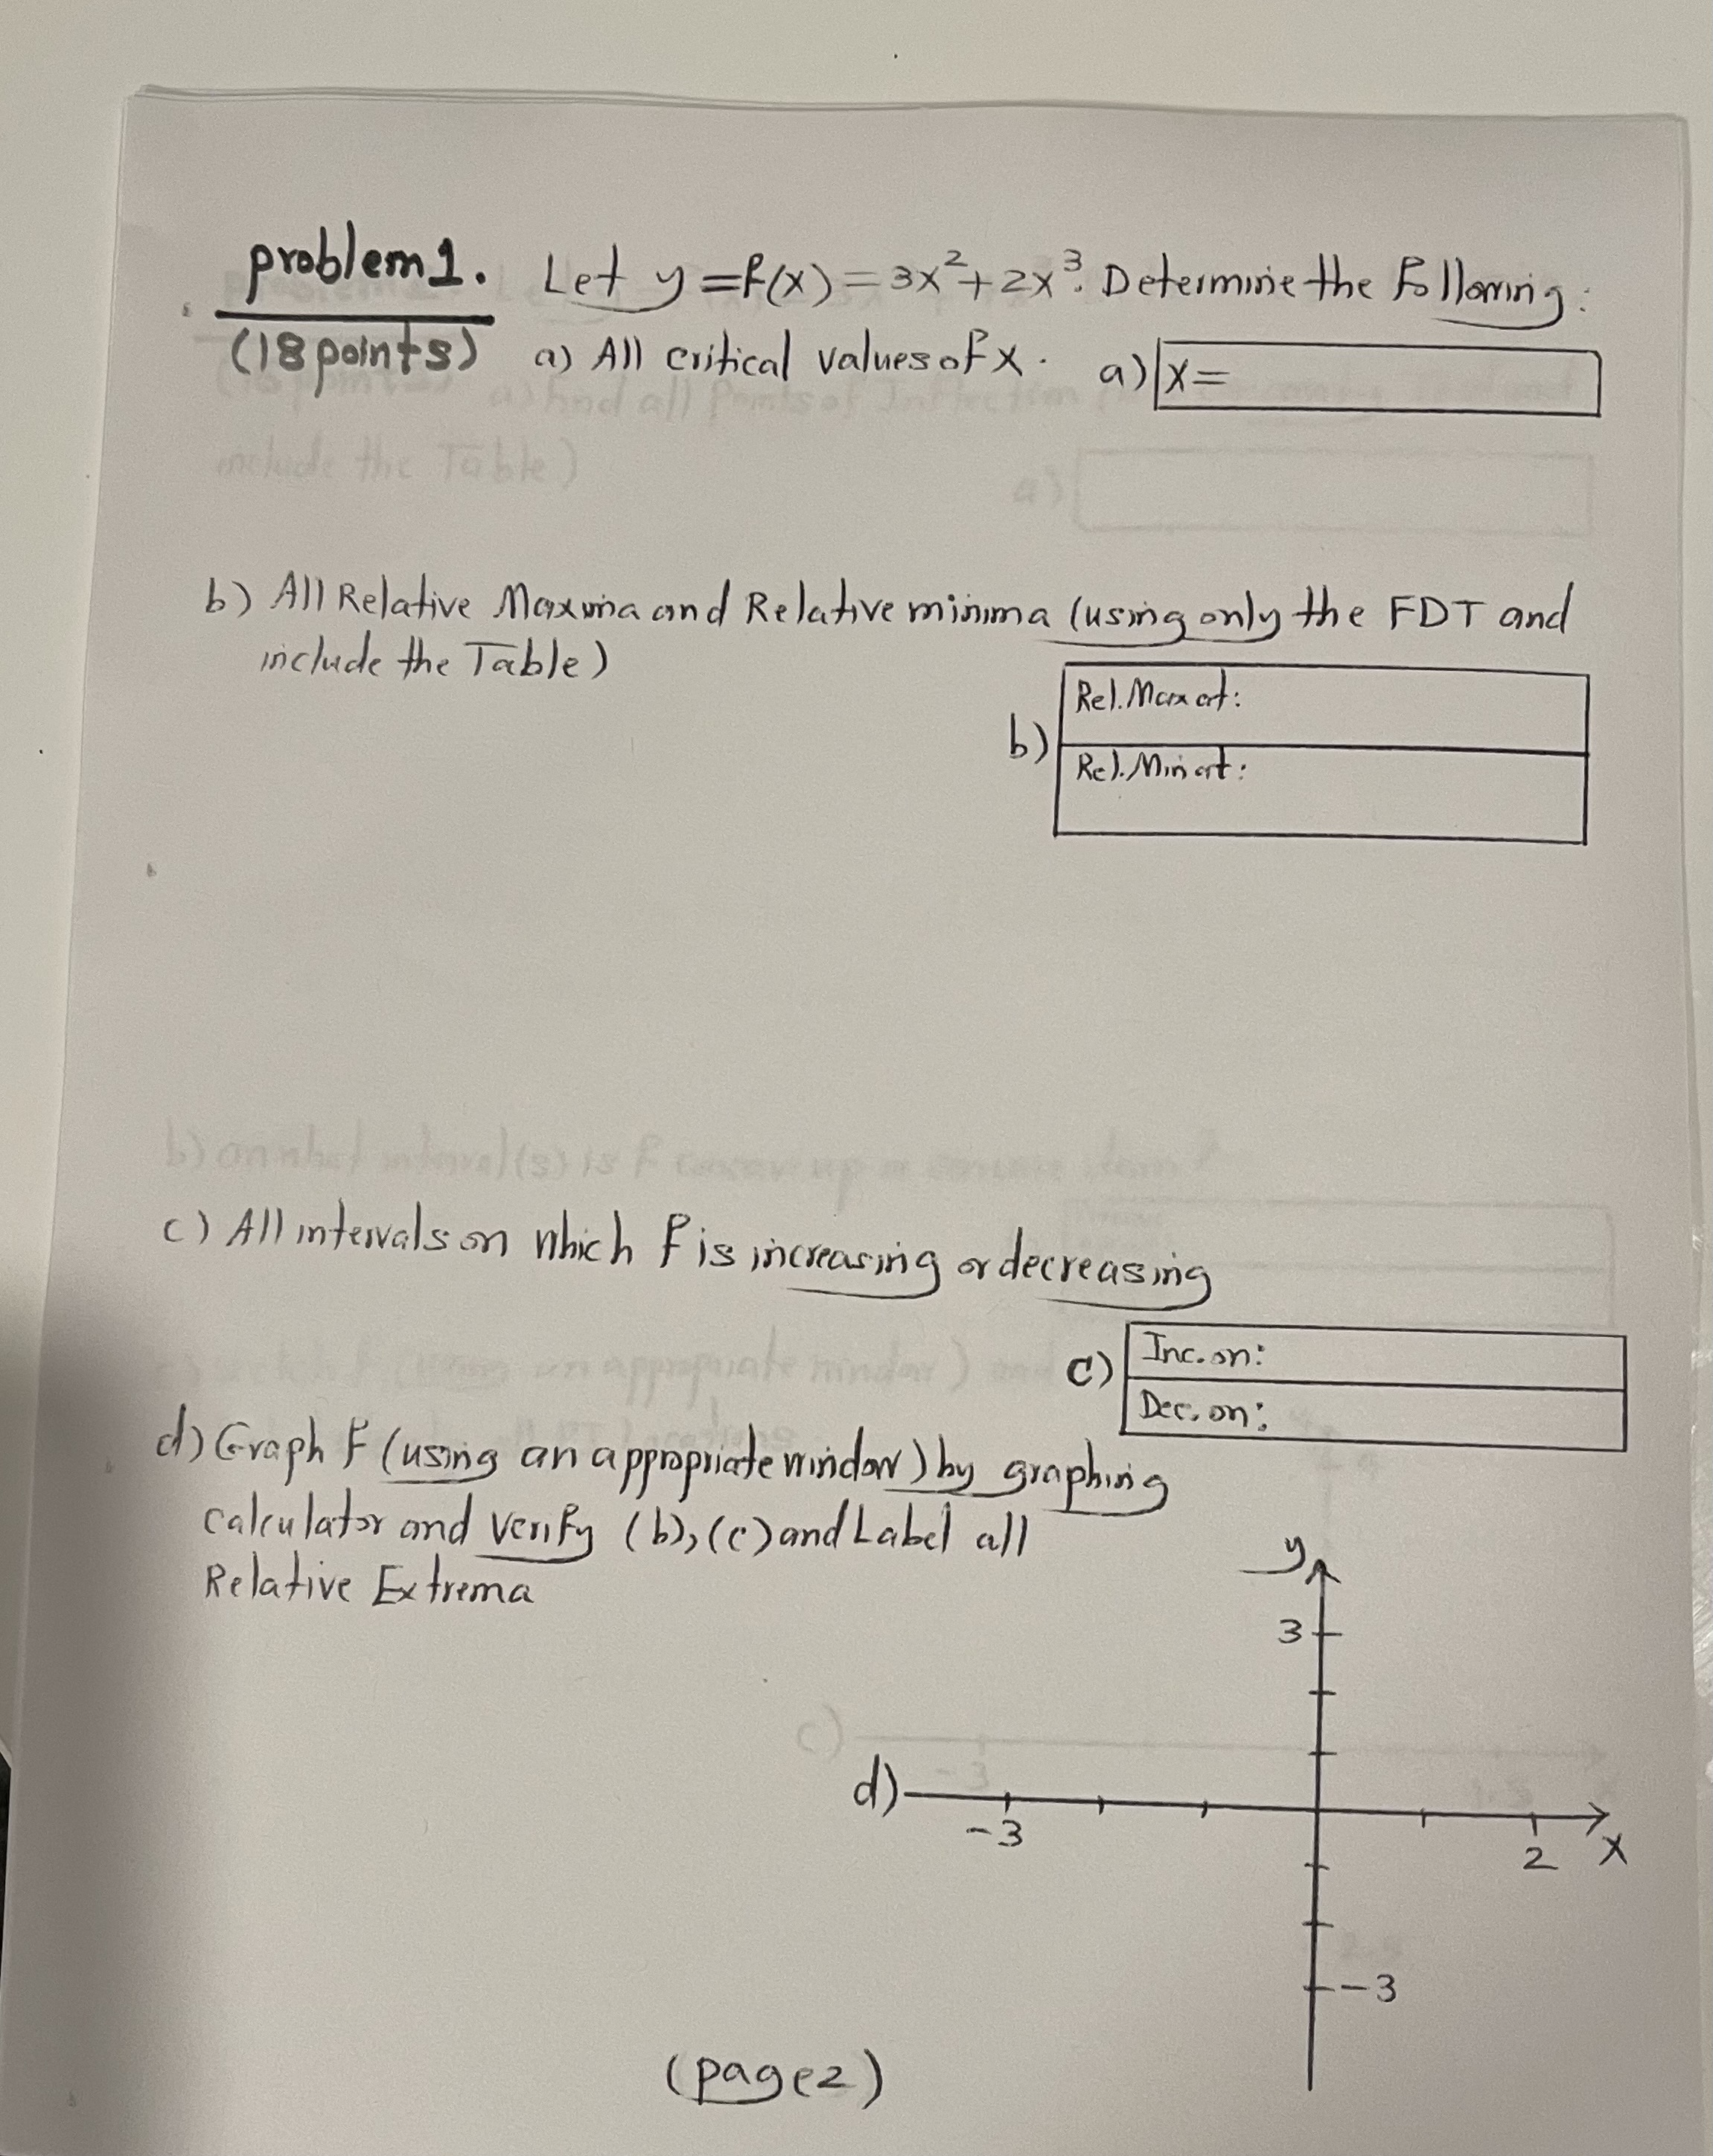 problem 1. Let y = f(x) = 3x² + 2x³. Determine the Following:
(18 points) a) All critical values of x. a) x =
b) All Relative Maxima and Relative minima (using only the FDT and
include the Table)
Rel. Max at:
b)
Rel. Min at:
c) All intervals on which f is increasing or decreasing
c) Inc. on:
Dec. on:
d) Graph f (using an appropriate window) by graphing
calculator and verify (b), (c) and Label all
Relative Extrema
y
3
d)
-3
2 x
-3
(page 2)